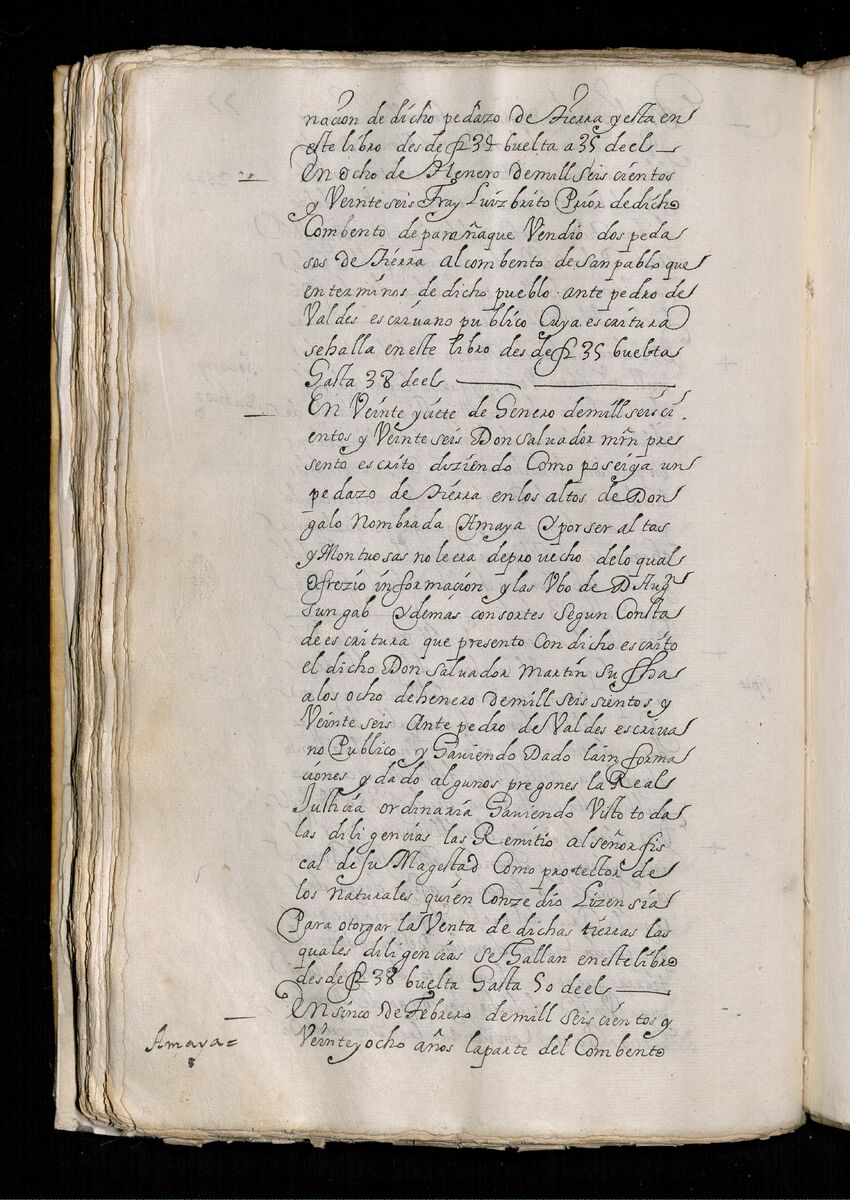 nacion de dicho pedazo de tierra y esta en
este libro desde f 34 buelta a 35 de el
En ocho de Henero de mill seis cientos
y Veinte seis Fray Luiz brito Prior de dicho
Combento de parañaque Vendio dos peda
sos de tierra al combento de san pablo que
en terminos de dicho pueblo ante pedro de
Valdes escriuano publico Cuya escritura
se halla en este libro desde f 35 buelta
hasta 38 de el
En Veinte y siete de henero de mill seis ci
entos y Veinte seis Don saluador mrñ pre
sento escrito diziendo Como poseiya un
pedazo de tierra en los altos de Don
galo Nombrada Amaya Y por ser altas
y Montuosas no le era de prouecho de lo qual
Ofrezio informacion y las Vbo de D Augn
Sungab Y demas consortes segun Consta
de escritura que presento Con dicho escrito
el dicho Don saluador Martin su fha
a los ocho de henero de mill seis sientos y
Veinte seis Ante pedro de Valdes escriua
no Publico y hauiendo Dado la in forma
ciones y dado algunos pregones la Real
Justicia ordinaria hauiendo Visto toda
las diligencias las Remitio al señor fis
cal de su Magestad Como protector de
los Naturales quien Conzedio Lizensia
Para otorgar la Venta de dichas tierras las
quales diligencias se hallan en este libro
desde f 38 buelta hasta 50 de el
En sinco de Febrero de mill seis cientos y
Amaya =
Veinte y ocho años la parte del Combento